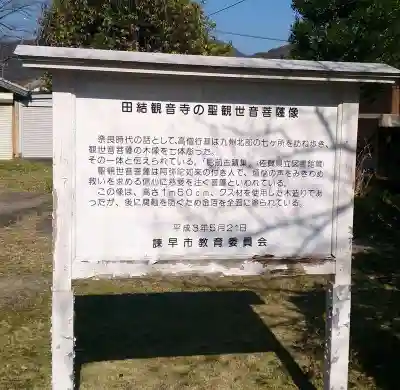 田結観音寺の聖観世音菩薩像
奈良時代の話として、高僧行基は九州北部の七ケ所を訪ね歩き
観世音菩薩の木像を七体彫った。
その一体と伝えられている。「肥前古蹟集」(佐賀県立図書館蔵)
聖観世音菩薩は阿弥陀如来の付き人で、煩悩の声をみきわめ
救いを求める信心に慈愛を注ぐ菩薩といわれている。
この像は、高さ1m50cm、クス材を使用した木造りであ
ったが、後に腐蝕を防ぐため金箔を全面に塗られている。
平成3年5月21日
諫早市教育委員会